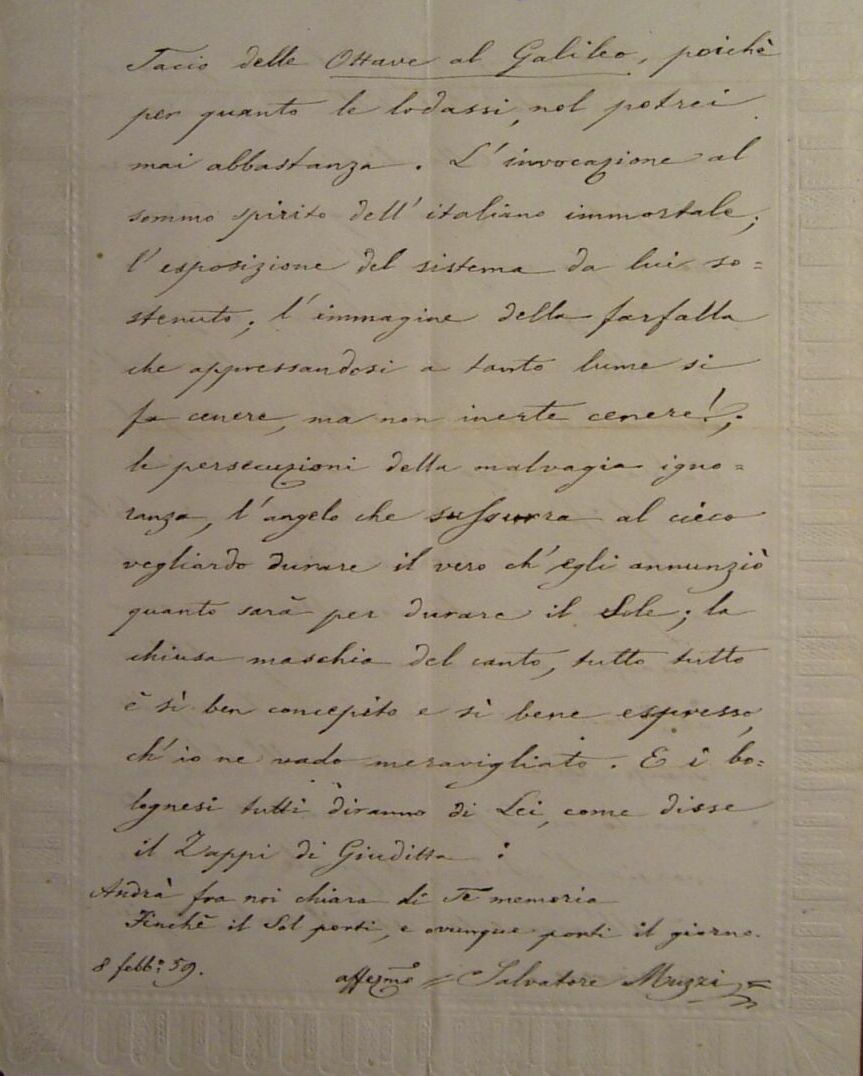 Tacio delle Ottave al Galileo, poichè
per quanto le lodassi, nol potrei
mai abbastanza. L'invocazione al
sommo spirito dell'italiano immortale;
l'esposizione del sistema da lui so=
stenuto; l'immagine della farfalla
che appressandosi a tanto lume si
fa cenere, ma non inerte cenere!;
le persecuzioni della malvagia igno=
ranza, l'angelo che sussurra al cieco
vegliardo durare il vero ch'egli annunziò
quanto sarà per durare il Sole; la
chiusa maschia del canto, tutto tutto
è sì ben concepito e sì bene espresso,
ch'io ne vado meravigliato. E i bo=
lognesi tutti diranno di Lei, come disse
il Zappi di Giuditta:
Andrà fra noi chiara di Te memoria
Finchè il Sol porti, e ovunque porti il giorno.
8 febb.º 59. affezmº = Salvatore Muzzi